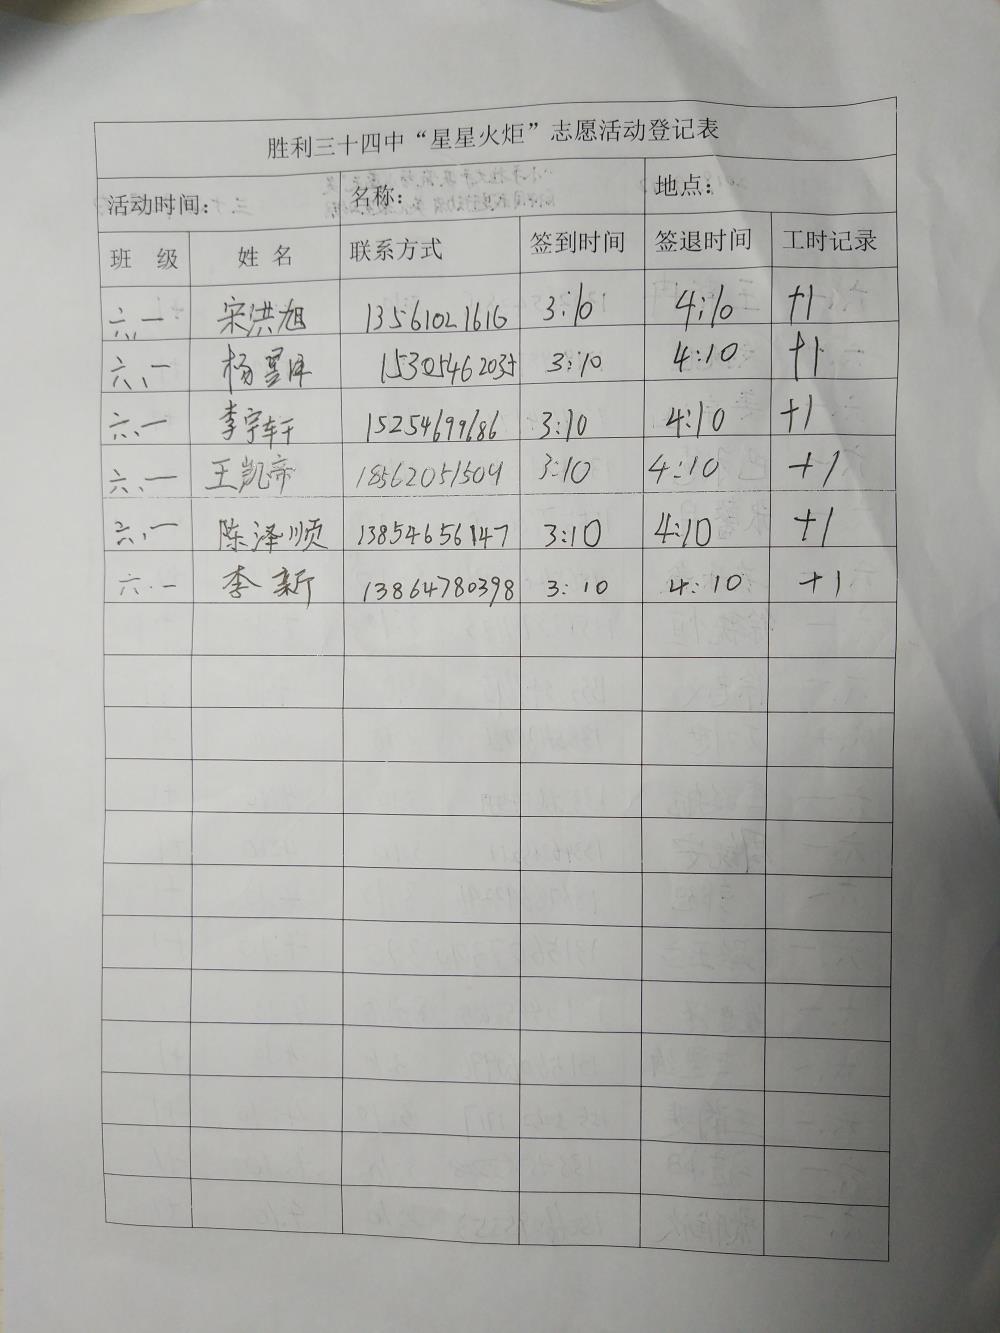 胜利三十四中“星星火炬”志愿活动登记表
活动时间: 名称: 地点:
班 级 姓 名 联系方式 签到时间 签退时间 工时记录
六、一 宋洪旭 13561021616 3:10 4:10 +1
六、一 杨星泽 15305462035 3:10 4:10 +1
六、一 李宇轩 15254699686 3:10 4:10 +1
六、一 王凯帝 18562051509 3:10 4:10 +1
六、一 陈泽顺 13854656147 3:10 4:10 +1
六.一 李新 13864780398 3:10 4:10 +1